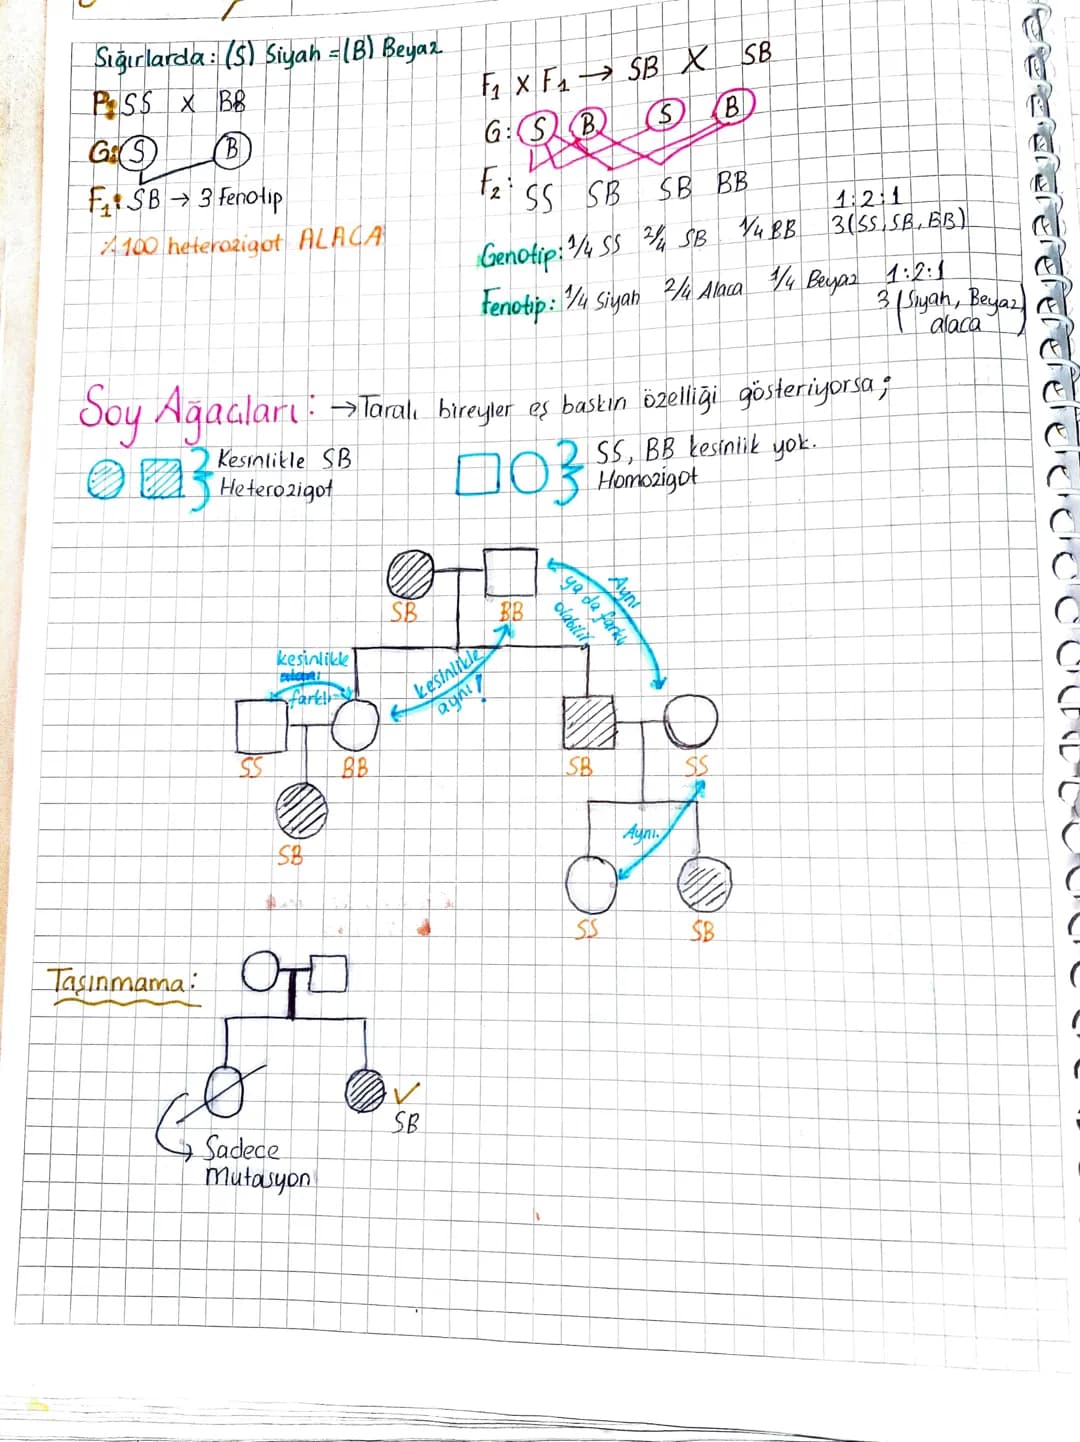 Sığırlarda: (S) Siyah = (B) Beyaz
P: SS X BB
G: S B
F1: SB → 3 Fenotip
% 100 heterozigot ALACA
F1 X F1 → SB X SB
G: S B S B
F2: SS SB SB BB
1:2:1
Genotip: 1/4 SS 2/4 SB 1/4 BB 3(SS, SB, BB)
Fenotip: 1/4 Siyah 2/4 Alaca 1/4 Beyaz 1:2:1
3 (Siyah, Beyaz
alaca)
Soy Ağaçları: → Taralı bireyler eş baskın özelliği gösteriyorsa;
Kesinlikle SB
Heterozigot
SS, BB kesinlik yok.
Homozigot
SB BB
Aynı
ya da farklı
olabilir
kesinlikle
farklı
kesinlikle
aynı!
SS BB SB SS
SB
Aynı.
SS SB
Taşınmama:
SB
Sadece
Mutasyon